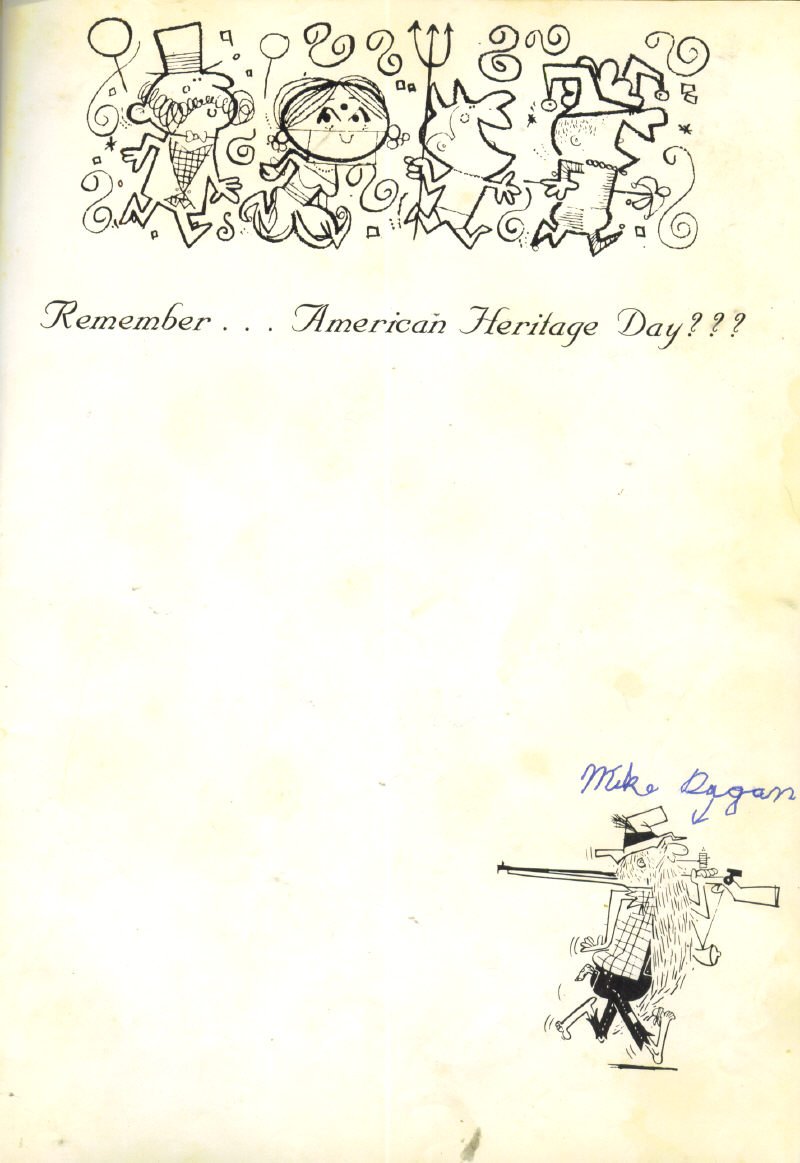 Remember . . . American Heritage Day???
Mike